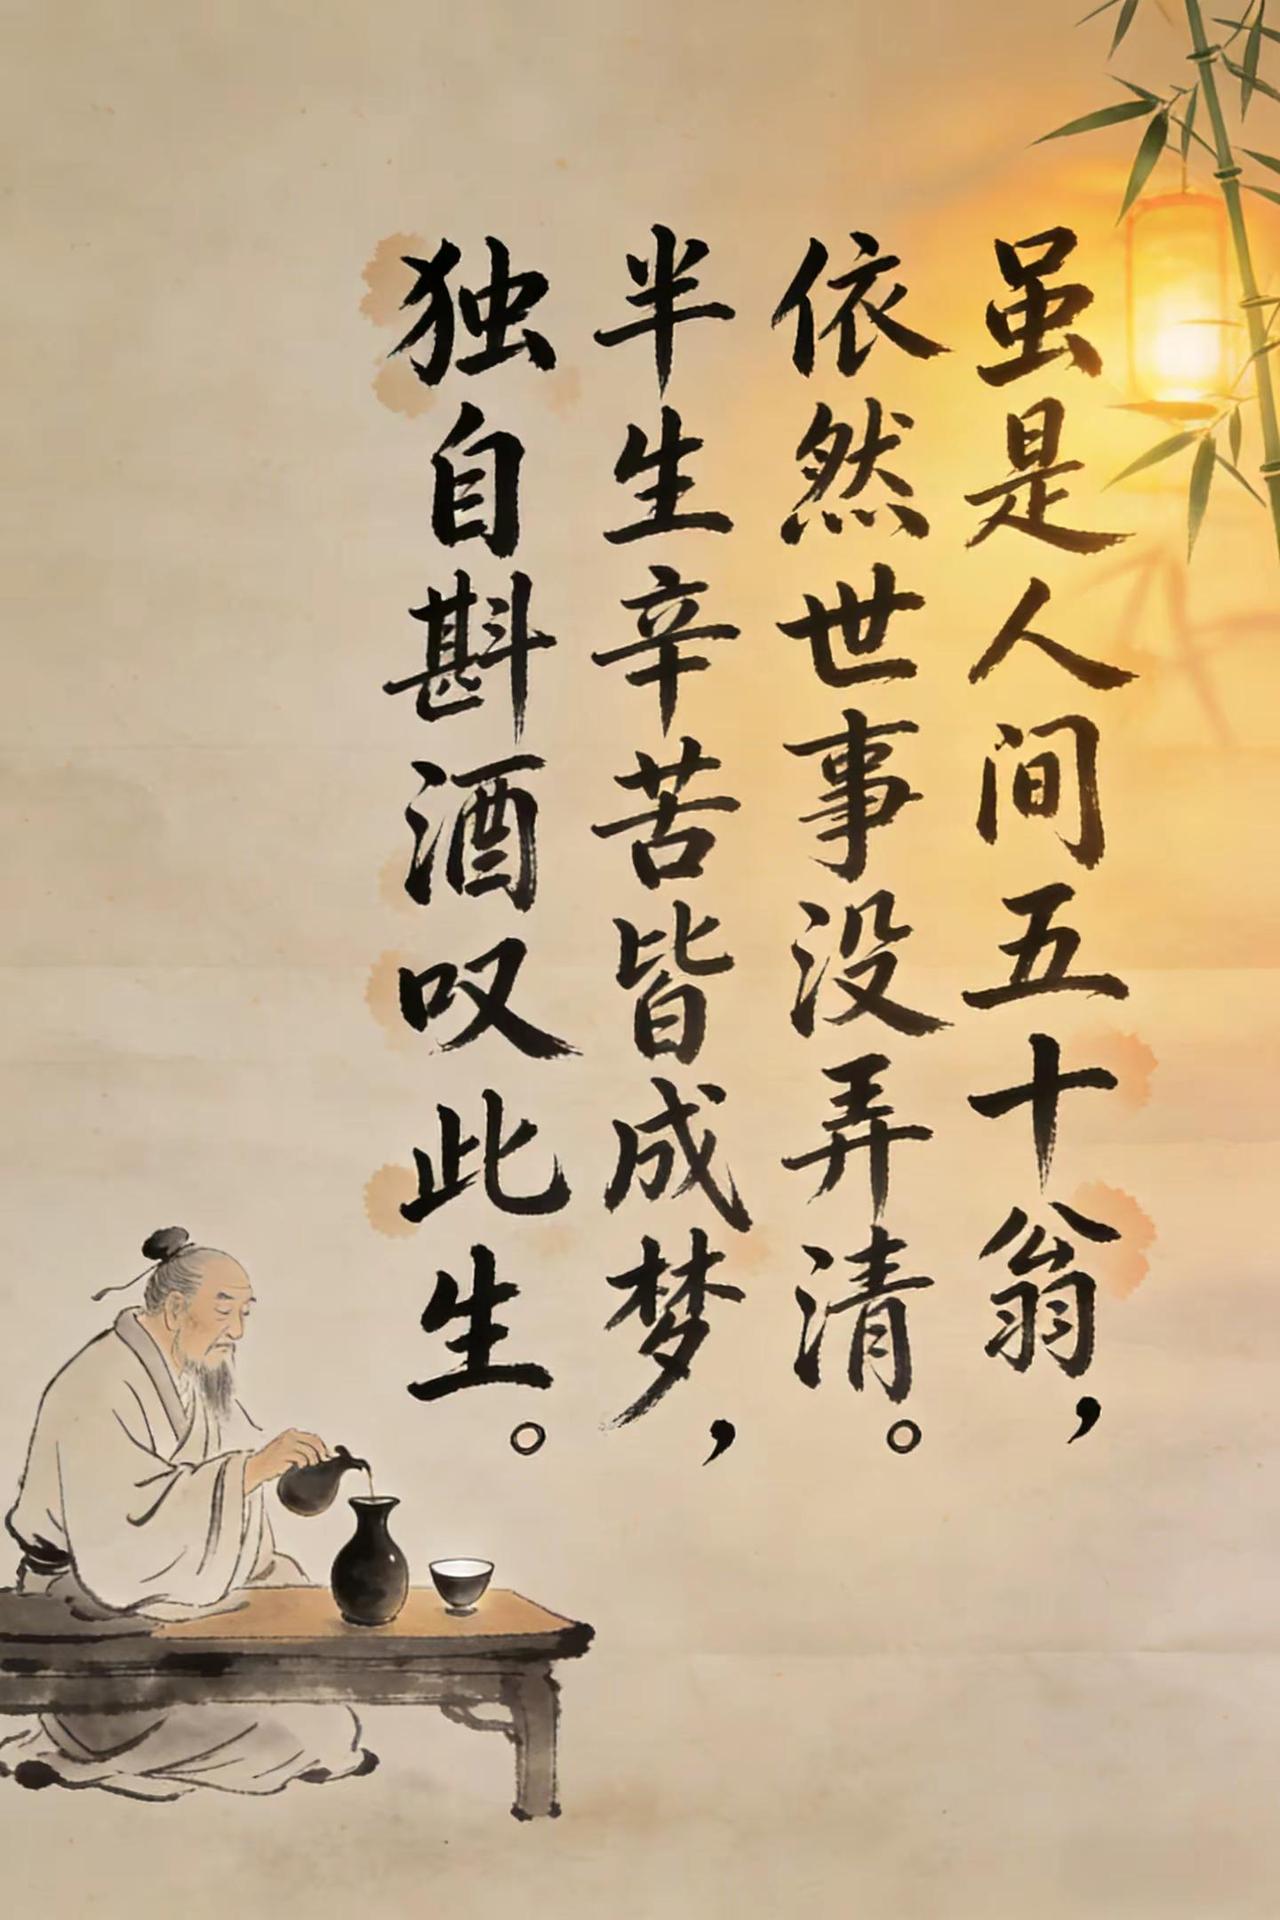 虽是人间五十翁，
依然世事没弄清。
半生辛苦皆成梦，
独自斟酒叹此生。